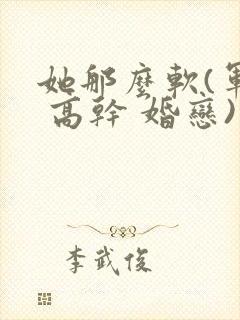 她那麼軟(軍
高幹 婚戀)
李武俊